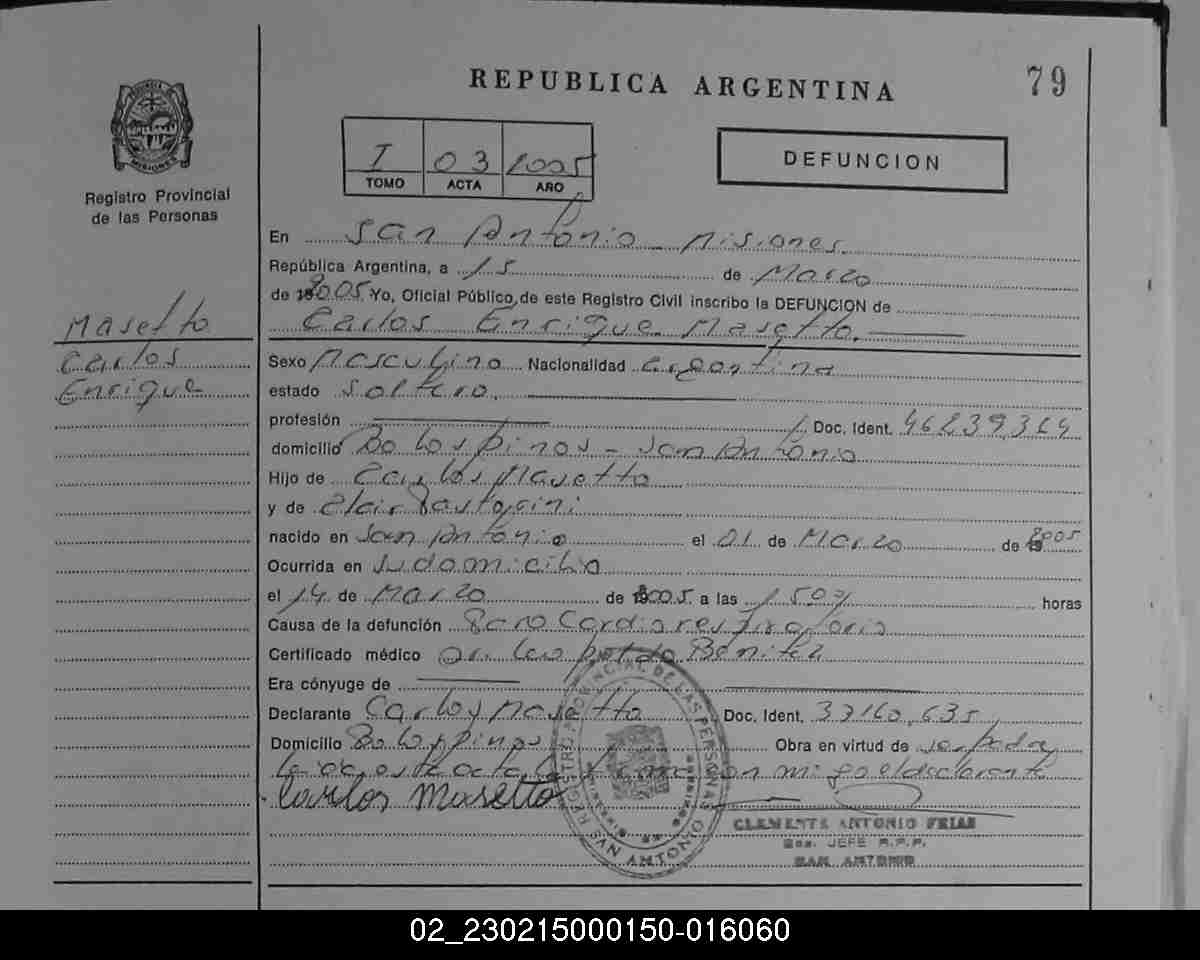 REPUBLICA ARGENTINA
79
PROVINCIA DE MISIONES
Registro Provincial
de las Personas
I 03 2005
TOMO ACTA AÑO
DEFUNCION
En San Antonio - Misiones.
República Argentina, a 15 de Marzo
de 2005 Yo, Oficial Público, de este Registro Civil inscribo la DEFUNCION de
Carlos Enrique Masetto.
Masetto
Carlos
Enrique
Sexo Masculino Nacionalidad argentina
estado soltero.
profesión Doc. Ident. 46.239.314
domicilio Bo Los Pinos - San Antonio
Hijo de Carlos Masetto
y de Clair
nacido en San Antonio el 01 de Marzo de 2005
Ocurrida en su domicilio
el 14 de Marzo de 2005 a las horas
Causa de la defunción Paro Cardiorespiratorio
Certificado médico Dr. Leopoldo Benitez
Era cónyuge de
Declarante Carlos Masetto Doc. Ident. 33160.635
Domicilio Bo Los Pinos Obra en virtud de ser padre
Leida esta acta la firma con migo el declarante
Carlos Masetto
REGISTRO PROVINCIAL DE LAS PERSONAS
MISIONES
SAN ANTONIO
CLEMENTE ANTONIO FRIAS
JEFE R.P.P.
SAN ANTONIO
02_230215000150-016060